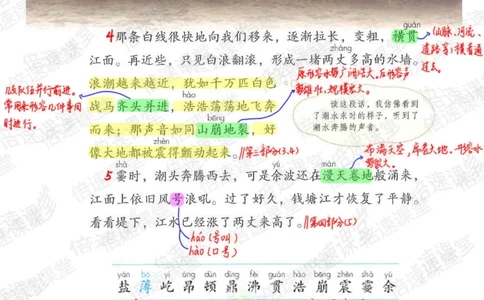 guàn
4那条白线很快地向我们移来，逐渐拉长，变粗，横贯
(山脉、河流、道路等)横着通过去。
zhàng
江面。再近些，只见白浪翻滚，形成一堵两丈多高的水墙。
浪潮越来越近，犹如千万匹白色
几支队伍并行前进。常用来形容几件事同时进行。
hào
战马齐头并进，浩浩荡荡地飞奔
bēng
而来；那声音如同山崩地裂，好
zhèn
像大地都被震得颤动起来。//第三部分(3,4)
读这段话，我仿佛看到
了潮水来时的样子，听到了
潮水奔腾的声音。
shà yú màn
5霎时，潮头奔腾西去，可是余波还在漫天卷地般涌来，
江面上依旧风号浪吼。过了好久，钱塘江才恢复了平静。
看看堤下，江水已经涨了两丈来高了。//第四部分(5)
háo (号叫)
hào (口号)
yán bó yì áng dùn dǐng fèi guàn hào bēng zhèn shà yú
盐 薄 屹 昂 顿 鼎 沸 贯 浩 崩 震 霎 余